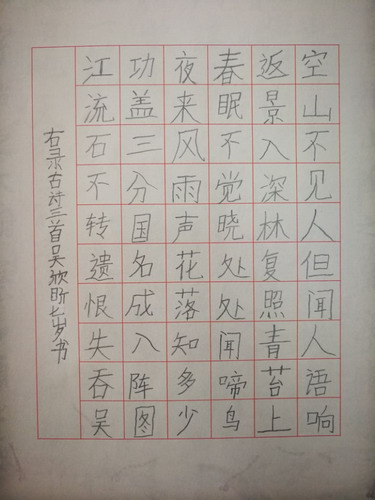 空山不见人但闻人语响
返景入深林复照青苔上
春眠不觉晓处处闻啼鸟
夜来风雨声花落知多少
功盖三分国名成入阵图
江流石不转遗恨失吞吴
右录古诗三首吴欣昕七岁书